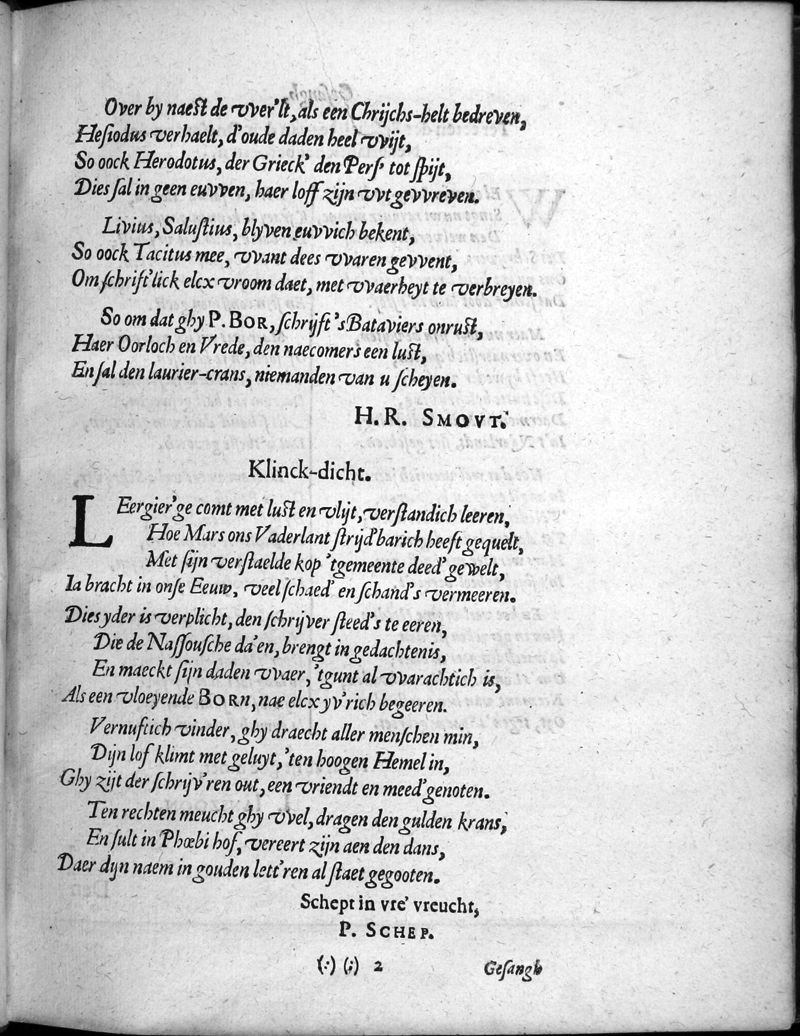 Over by naest de vver'lt, als een Chrijchs-helt bedreven,
Hesiodus verhaelt, d'oude daden heel vvijt,
So oock Herodotus, der Grieck' den Pers' tot spijt,
Dies sal in geen euvven, haer loff zijn vvtgevvreven.
Livius, Salustius, blyven euvvich bekent,
So oock Tacitus mee, vvant dees vvaren gevvent,
Om schrift'lick elcx vroom daet, met vvaerheyt te verbreyen.
So om dat ghy P. BOR, schrijft 'sBataviers onrust,
Haer Oorloch en Vrede, den naecomers een lust,
En sal den laurier-crans, niemanden van u scheyen.
H. R. SMOVT.
Klinck-dicht.
LEergier'ge comt met lust en vlijt, verstandich leeren,
Hoe Mars ons Vaderlant strijd'barich heeft gequelt,
Met sijn verstaelde kop 'tgemeente deed' gewelt,
Ia bracht in onse Eeuw, veel schaed' en schand's vermeeren.
Dies yder is verplicht, den schrijver steed's te eeren,
Die de Nassousche da'en, brengt in gedachtenis,
En maeckt sijn daden vvaer, 'tgunt al vvarachtich is,
Als een vloeyende BORn, nae elcx yv'rich begeeren.
Vernuftich vinder, ghy draecht aller menschen min,
Dijn lof klimt met geluyt, 'ten hoogen Hemel in,
Ghy zijt der schrijv'ren out, een vriendt en meed'genoten.
Ten rechten meucht ghy vvel, dragen den gulden krans,
En sult in Phœbi hof, vereert zijn aen den dans,
Daer dijn naem in gouden lett'ren al staet gegooten.
Schept in vre' vreucht,
P. SCHEP.
(:) (;) 2 Gesangh